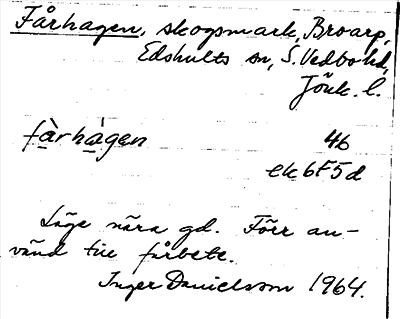 Fårhagen, skogsmark, Broarp,
Edshults sn, S. Vedbo hd,
Jönk. l.
fà̱rhà̱gen 4b
ek 6F5d
Läge nära gd. Förr an-
vänd till fårbete.
Inger Danielsson 1964.